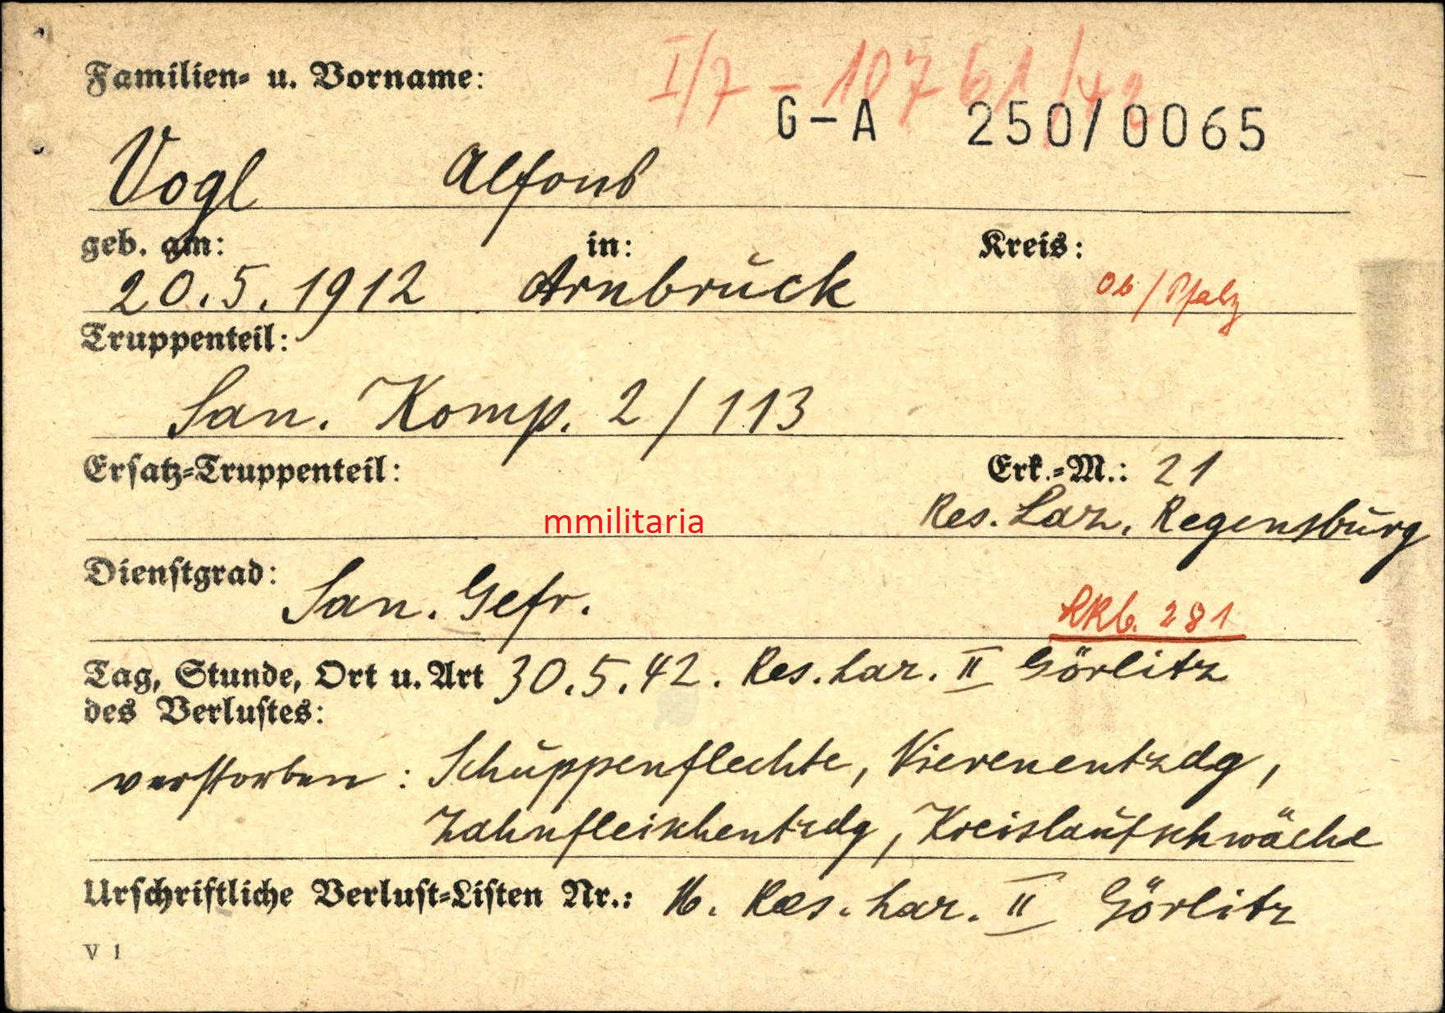 Familien- u. Vorname:
I/7 - 10761/42
G-A 250/0065
Vogl Alfons
geb. am: in: Kreis:
20.5.1912 Arnbrück Ob/Pfalz
Truppenteil:
San. Komp. 2/113
Ersatz-Truppenteil: Erk.-M.: 21
mmilitaria Res. Laz. Regensburg
Dienstgrad:
San. Gefr.
RKb. 281
Tag, Stunde, Ort u. Art 30.5.42. Res. Laz. II Görlitz
des Verlustes:
verstorben: Schuppenflechte, Nierenentzdg,
Zahnfleischentzdg, Kreislaufschwäche
Urschriftliche Verlust-Listen Nr.: 16. Res. Laz. II Görlitz
V 1